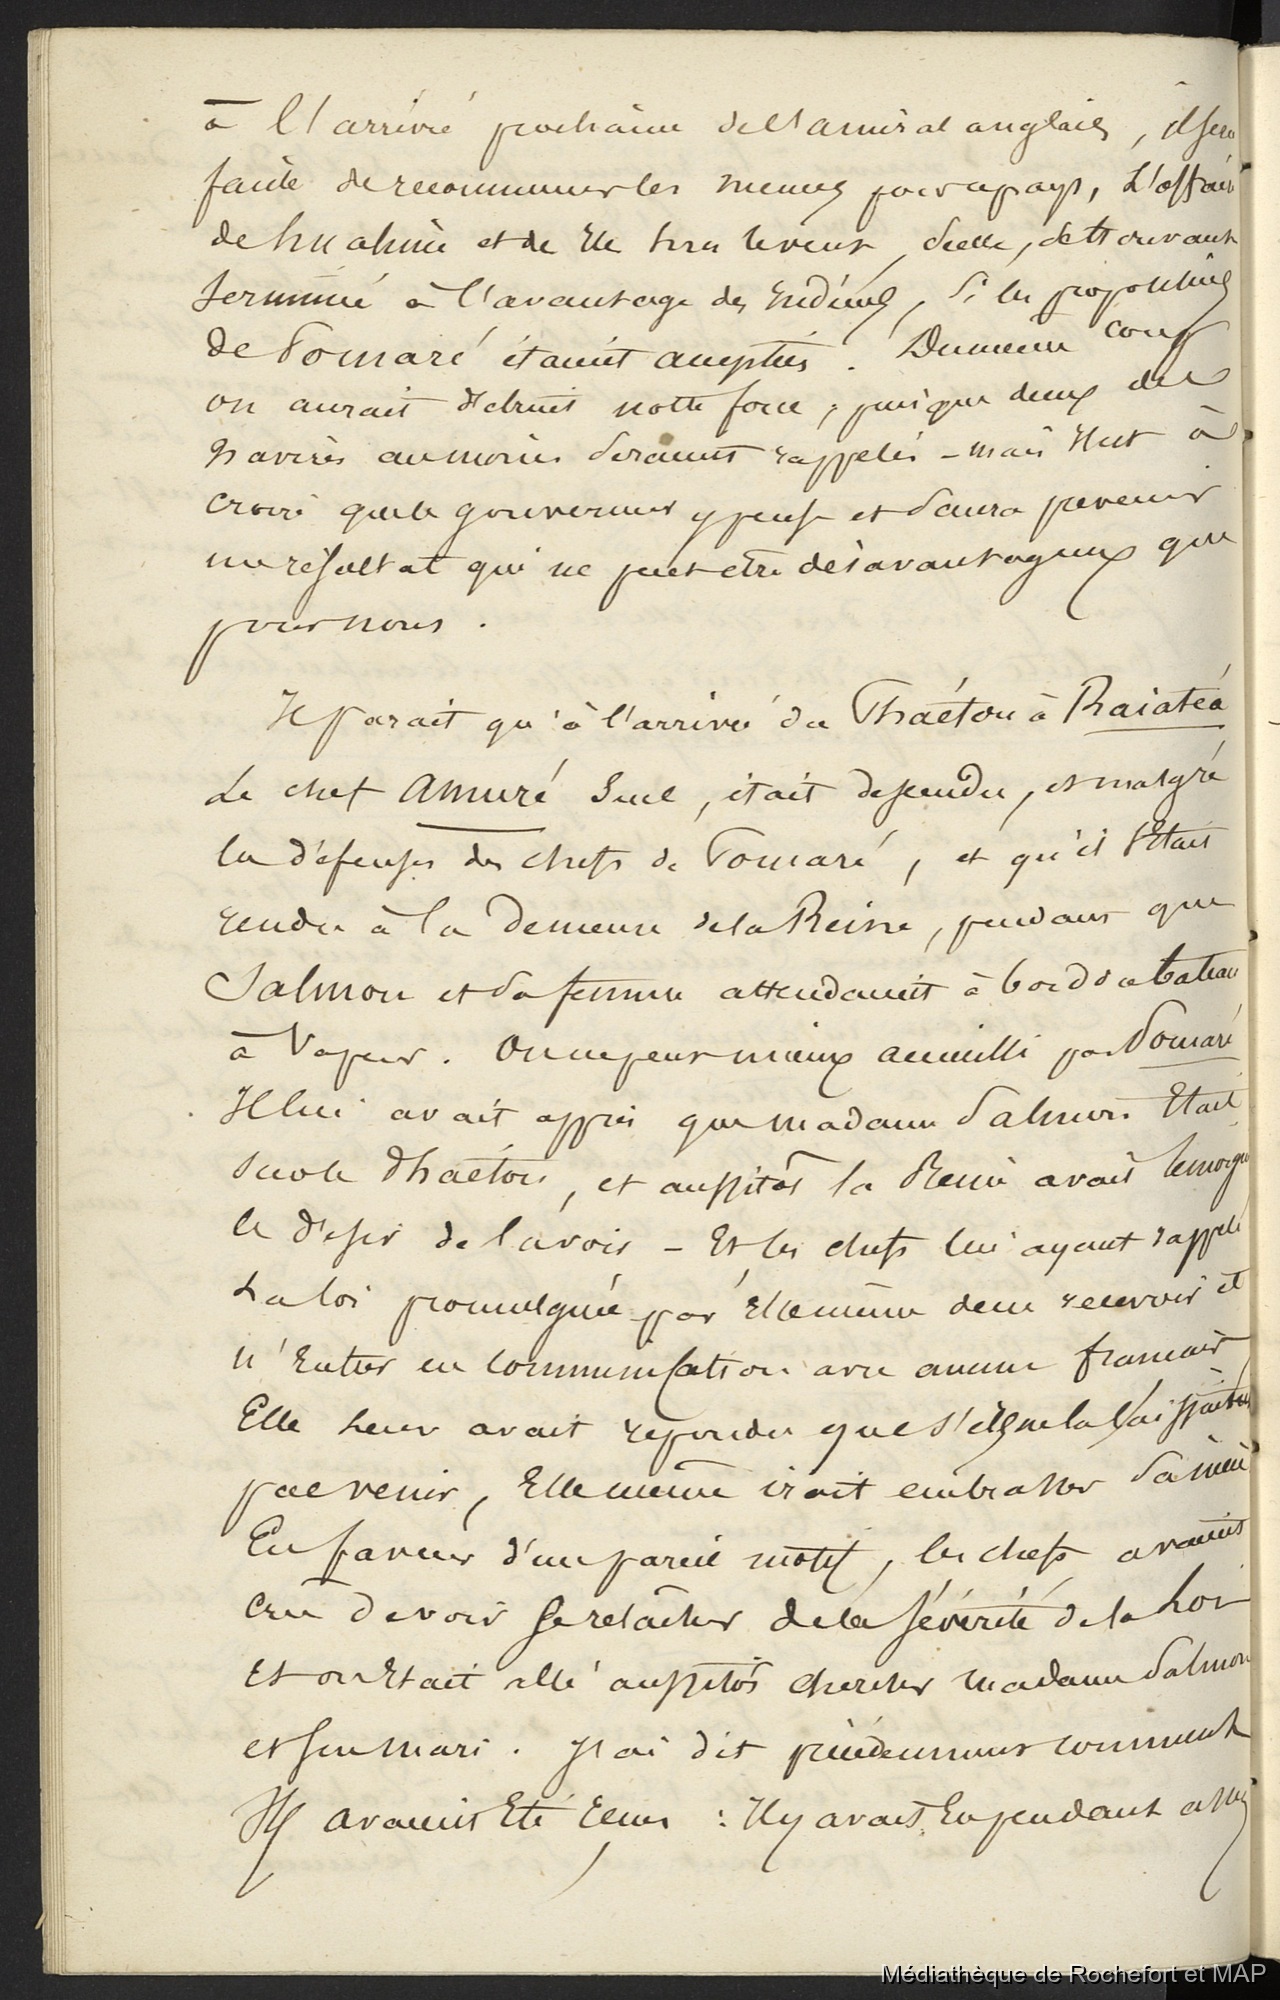 à l'arrivée prochaine de l'amiral anglais, il sera
facile de recommencer les mêmes pourparlers, L'affaire
de huahine et de se trouvant
terminée à l'avantage des Indiens, Si les propositions
de Pomaré étaient acceptées. Du même coup
on aurait détruit notre force, puisque deux des
navires au moins seraient rappelés - mais il est à
croire que le gouverneur y pense et saura prévenir
un résultat qui ne peut être désavantageux que
pour nous.
Il parait qu'à l'arrivée du Phaéton à Raiatéa
Le chef Amuré Seul, était descendu, et malgré
la défense des chefs de Pomaré, et qu'il s'Etait
rendu à la Demeure de la Reine, pendant que
Salmon et sa femme attendaient à bord du bateau
à Vapeur. On ne peut mieux accueilli par Pomaré
Il lui avait appris que madame Salmon Etait
sur le Phaéton, et aussitôt la Reine avait témoigné
le désir de la voir - Et les chefs lui ayant rappelé
La loi promulguée par Elle même de ne recevoir et
n'Entrer en communication avec aucun français
Elle leur avait repondu que s'ils ne la laissaient
pas venir, Elle même irait embrasser Sa mère
En faveur d'un pareil motif, les chefs avaient
cru devoir se relâcher de la sévérité de la Loi
Et on Etait allé aussitôt chercher madame Salmon
et son mari. J'ai dit précédemment comment
Ils avaient Eté reçus : Il y avait cependant assez
Médiathèque de Rochefort et MAP